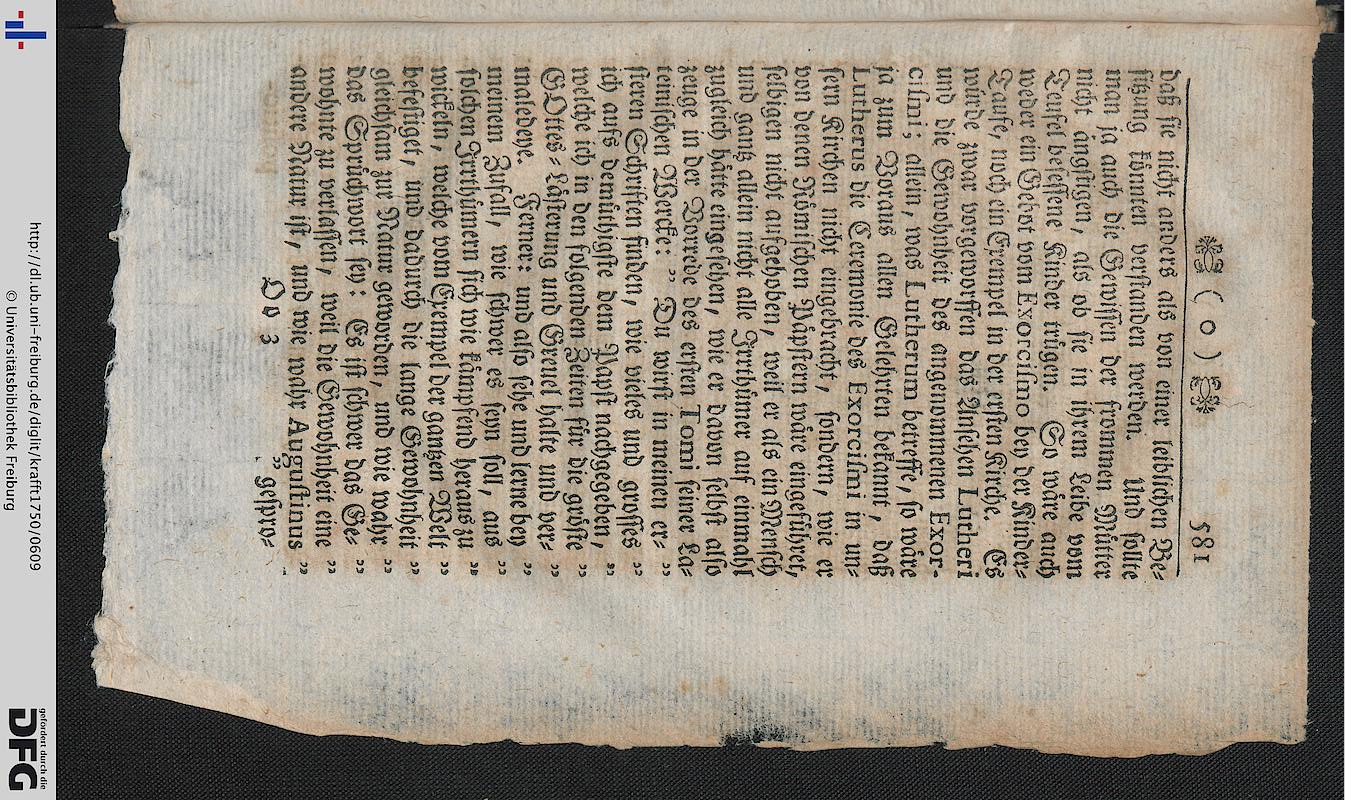 ( o ) 581
daß sie nicht anders als von einer leiblichen Be-
sitzung könten verstanden werden. Und sollte
man ja auch die Gewissen der frommen Mütter
nicht ängstigen, als ob sie in ihrem Leibe vom
Teufel besessene Kinder trügen. So wäre auch
weder ein Gebot vom Exorcismo bey der Kinder-
Taufe, noch ein Exempel in der ersten Kirche. Es
würde zwar vorgeworffen das Ansehen Lutheri
und die Gewohnheit des angenommenen Exor-
cismi; allein, was Lutherum betreffe, so wäre
ja zum Voraus allen Gelehrten bekannt, daß
Lutherus die Ceremonie des Exorcismi in un-
sern Kirchen nicht eingebracht, sondern, wie er
von denen Römischen Päpstern wäre eingeführet,
selbigen nicht aufgehoben, weil er als ein Mensch
und gantz allein nicht alle Irrthümer auf einmahl
zugleich hätte eingesehen, wie er davon selbst also
zeuge in der Vorrede des ersten Tomi seiner La-
teinischen Wercke: „ Du wirst in meinen er- „
steren Schriften finden, wie vieles und grosses „
ich aufs demüthigste dem Papst nachgegeben, „
welche ich in den folgenden Zeiten für die gröste „
GOttes-Lästerung und Greuel halte und ver- „
maledeye. Ferner: und also sehe und lerne bey „
meinem Zufall, wie schwer es seyn soll, aus „
solchen Irrthümern sich wie kämpfend heraus zu „
wickeln, welche vom Exempel der gantzen Welt „
befestiget, und dadurch die lange Gewohnheit „
gleichsam zur Natur geworden, und wie wahr „
das Sprüchwort sey: Es ist schwer das Ge- „
wohnte zu verlassen, weil die Gewohnheit eine „
andere Natur ist, und wie wahr Augustinus „
Oo 3 „ gespro-
http://dl.ub.uni-freiburg.de/diglit/krafft1750/0609
© Universitätsbibliothek Freiburg
gefördert durch die
DFG